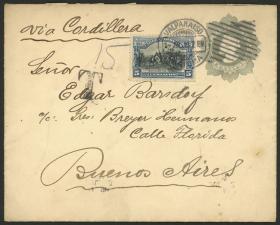 via Cordillera
15
VALPARAISO
5
T
Señor
Edgar Barsdorf
c/o Gres. Breyer Hermanos
Calle Florida
Buenos Aires